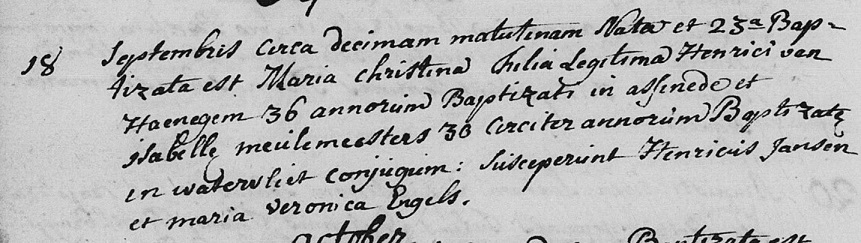 18 Septembris circa decimam matutinam Nata et 23a Bap-
tizata est Maria Christina Filia Legitima Henrici van
Haenegem 36 annorum Baptizati in assenede et
isabellę meulemeesters 30 circiter annorum Baptizatę
in watervliet conjugum: Susceperunt Henricus Jansen
et maria veronica Engels.
october
Baptizata est